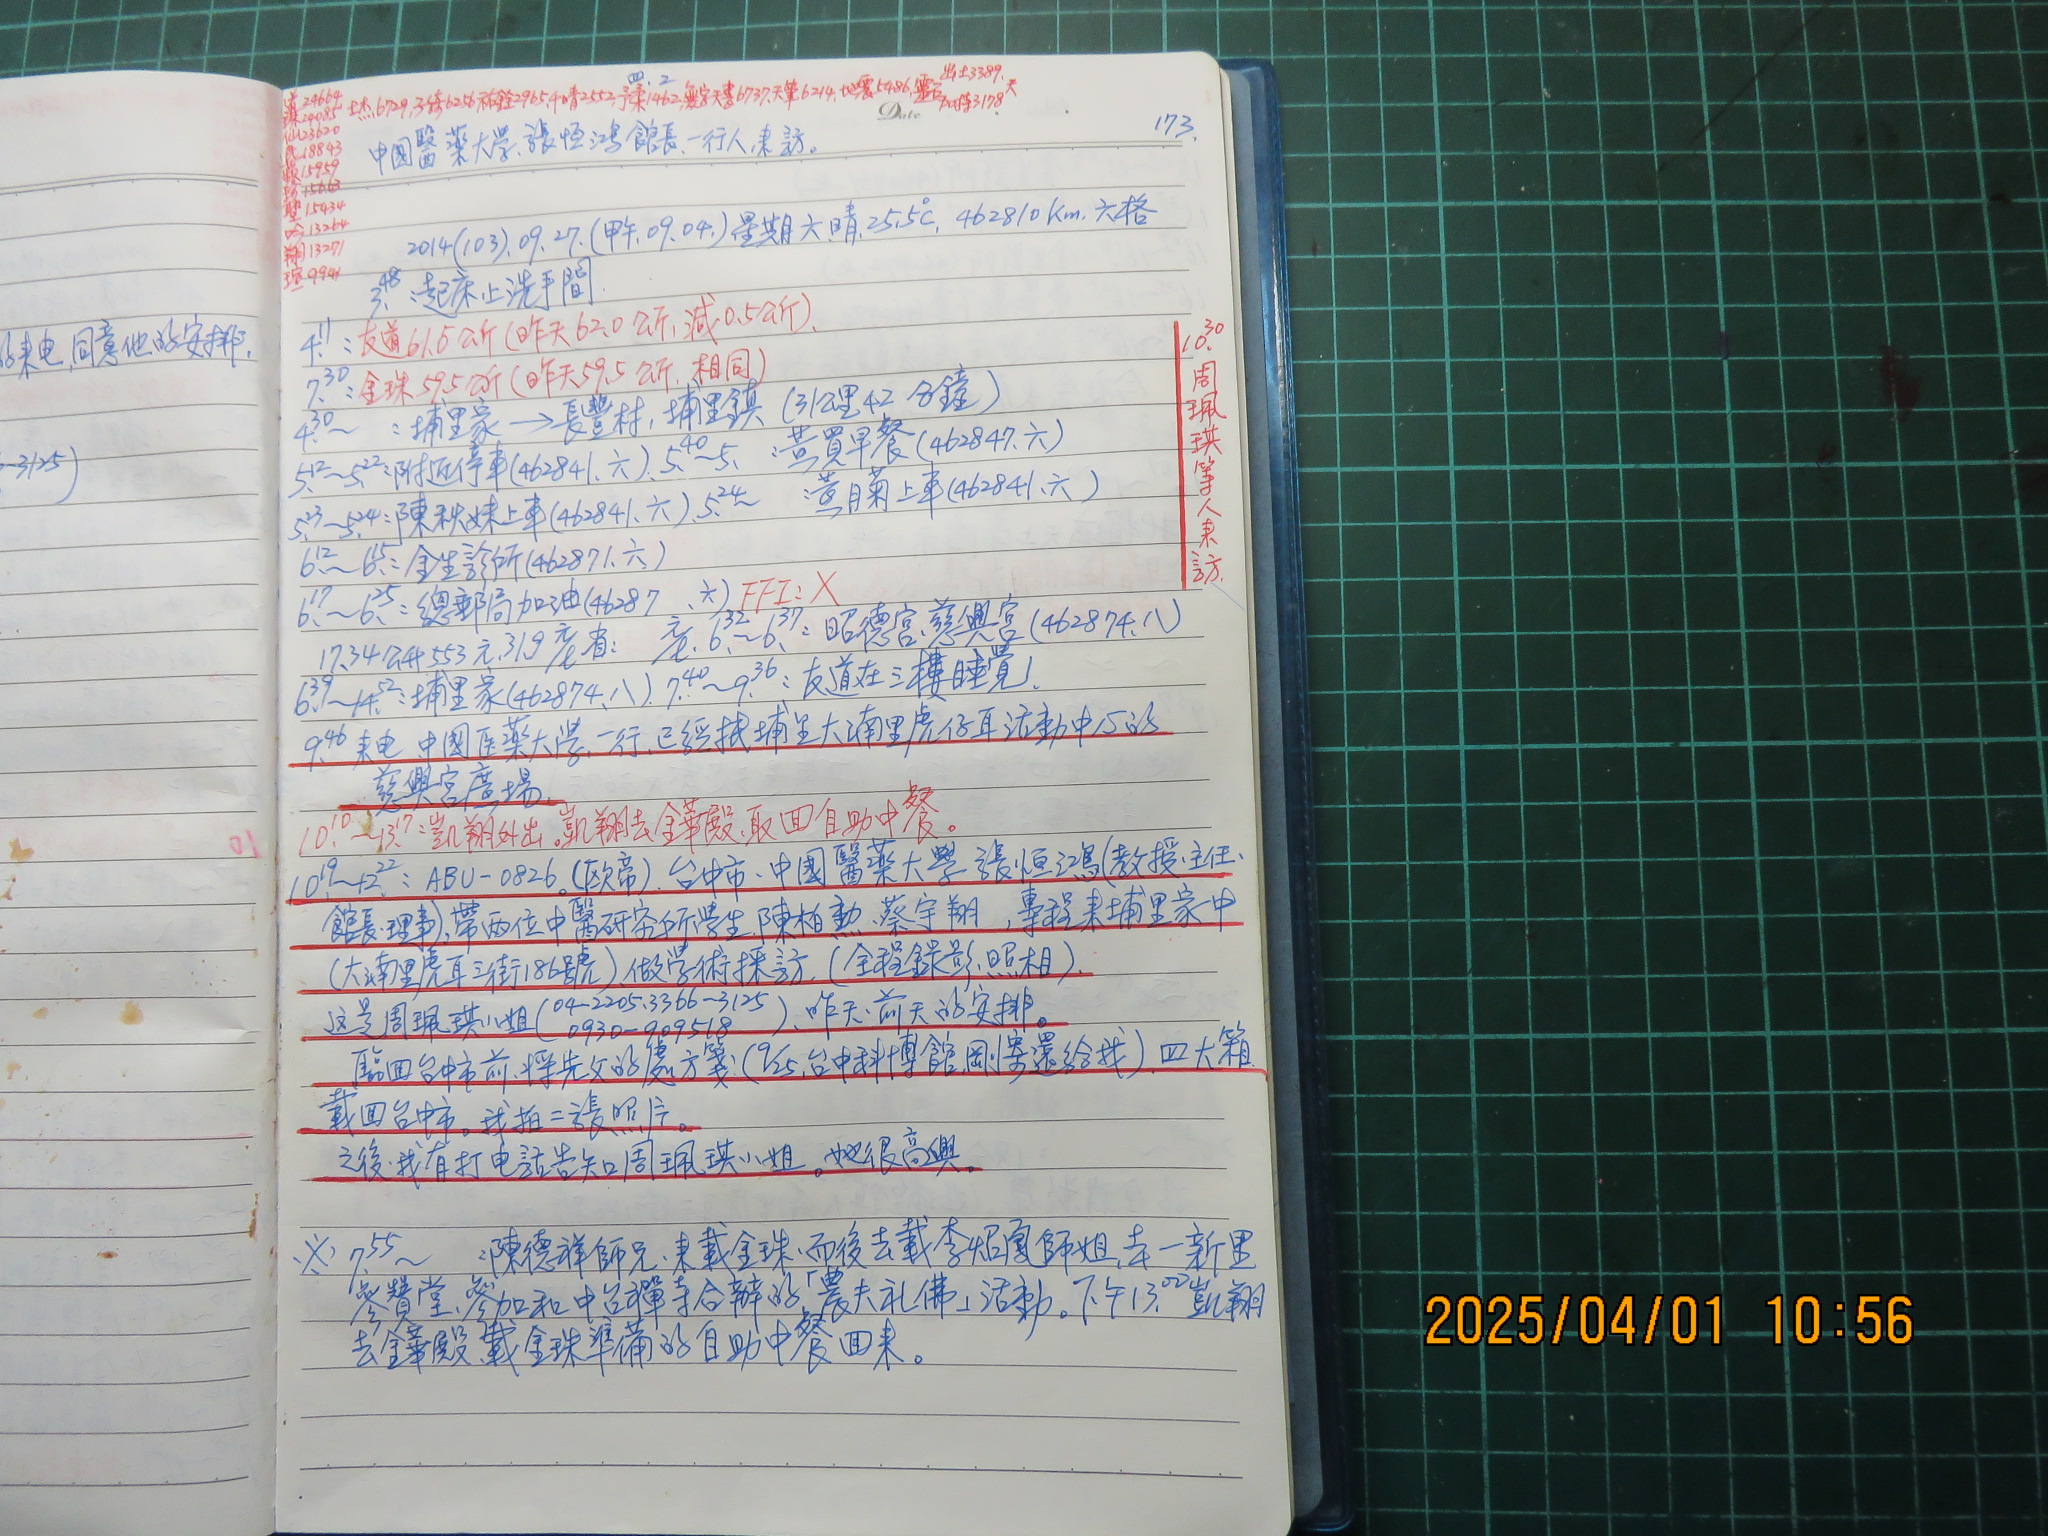 的來电,同意他的安排,
3125)
四.2
出土3389.
道24664
土杰.6729.
2965. 2552. 1462.無字天書6737.天筆6214.地震5486.靈石 3178.天
23620
18843
15959
聖15434
13264
翔13271
9941
Date
173.
中國醫藥大學.張恒鴻館長.一行人.來訪。
2014(103).09.27.(甲午.09.04.)星期六.晴.25.5℃. 462810 Km.六格
3.48:起床上洗手間.
4.11:友道61.5公斤(昨天62.0公斤,減0.5公斤).
7.30:金珠59.5公斤(昨天59.5公斤.相同)
4.30~ :埔里家→長豐村,埔里鎮(31公里42分鐘)
5.12~5.22:附近停車(462841.六).5.40~5. :黃買早餐(462847.六)
5.23~5.24:陳秋妹上車(462841.六).5.24~ :黃月菊上車(462841.六)
6.12~6.15:金生診所(462871.六)
6.17~6.25:總郵局加油(46287 .六)FFI:X
17.34公升553元.31.9元/ 省: 元. 6.32~6.37:昭德宮.慈興宮(462874.八)
6.39~14.52:埔里家(462874.八).7.40~9.36:友道在三樓睡覺.
9.46 來电 中國医藥大學.一行.已經抵埔里大湳里虎仔耳活動中心的
慈興宮廣場.
10.10~13.17:凱翔外出。凱翔去金華殿.取回自助中餐。
10.19~12.22:ABU-0826.(歐帝).台中市.中國醫藥大學 張恒鴻(教授.主任.
館長.理事).帶两位中醫研究所學生.陳柏勳.蔡宇翔,專程來埔里家中
(大湳里虎耳三街186號).做學術採訪.(全程錄影.照相).
这是周珮琪小姐(04-2205.3366~3125
0930-909518).昨天.前天的安排。
臨回台中市前.將先父的處方箋(9/25.台中科博館.剛寄還給我).四大箱.
載回台中市。我拍二張照片。
之後.我有打电話告知周珮琪小姐。她很高興。
※ 7.55~ :陳德祥師兄.來載金珠.而後去載李焰鳳師姐,去一新里
參贊堂.參加和中台禪寺合辦的「農夫礼佛」活動。下午13.02凱翔
去金華殿載金珠準備的自助中餐回來。
10.30
周珮琪等人來訪.
10
2025/04/01 10:56